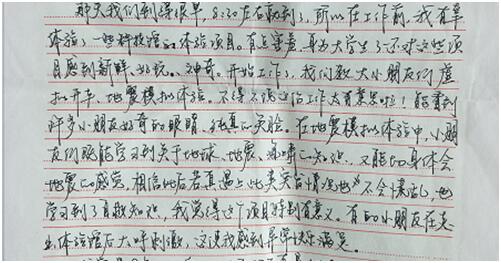 那天我们到得很早，8:30左右就到了，所以在工作前，我有幸
体验了一些科技馆的体验项目。有点害羞，身为大学生了还对这些项
目感到新鲜、好玩、神奇。开始工作了，我们教大小朋友们虚
拟开车、地震模拟体验。不得不说这份工作太有意思啦！能看到
许多小朋友好奇的眼睛、纯真的笑脸。在地震模拟体验中，小朋
友们既能学习到关于地球、地震、海啸的知识，又能切身体会
地震的感觉，相信以后若真遇上此类突发情况也不会慌乱，也
学习到了自救知识，我觉得这个项目特别有意义。有的小朋友在
体验馆后大呼刺激，这让我感到异常快乐满足。